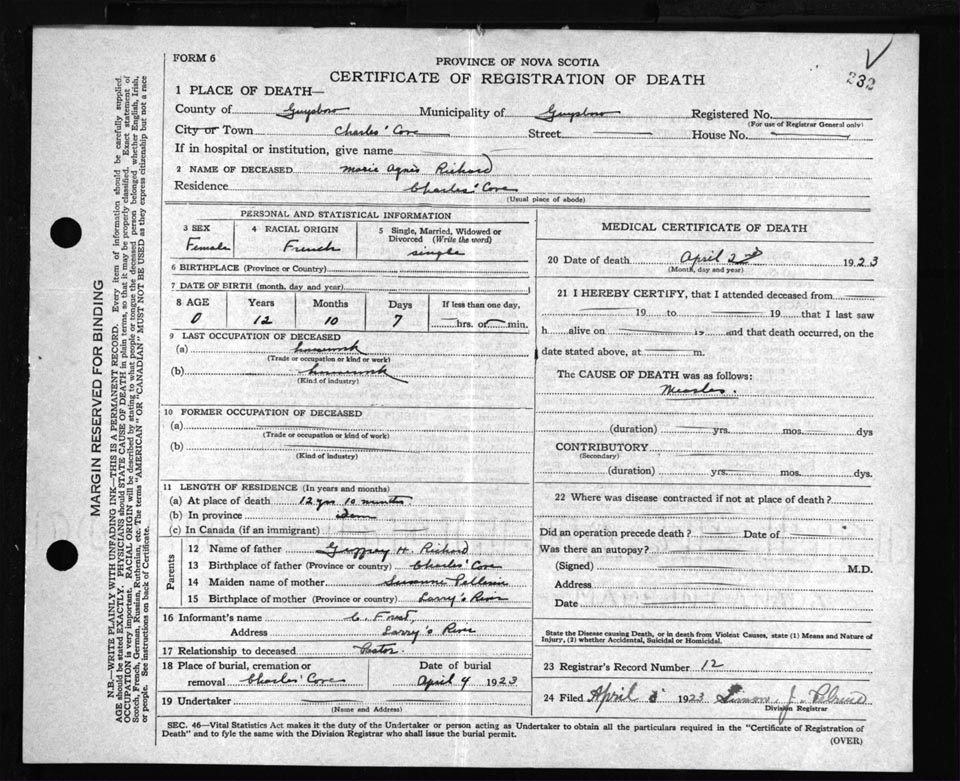 FORM 6
PROVINCE OF NOVA SCOTIA
232
CERTIFICATE OF REGISTRATION OF DEATH
1 PLACE OF DEATH—
County of Guysboro Municipality of Guysboro Registered No.
(For use of Registrar General only)
City or Town Charles' Cove Street House No.
If in hospital or institution, give name
2 NAME OF DECEASED Marie Agnes Richard
Residence Charles' Cove
(Usual place of abode)
PERSONAL AND STATISTICAL INFORMATION
3 SEX 4 RACIAL ORIGIN 5 Single, Married, Widowed or Divorced (Write the word)
Female French single
6 BIRTHPLACE (Province or Country)
7 DATE OF BIRTH (month, day and year)
8 AGE Years Months Days If less than one day,
0 12 10 7 hrs. or min.
9 LAST OCCUPATION OF DECEASED
(a) housework
(Trade or occupation or kind or work)
(b) housework
(Kind of industry)
10 FORMER OCCUPATION OF DECEASED
(a)
(Trade or occupation or kind of work)
(b)
(Kind of industry)
11 LENGTH OF RESIDENCE (In years and months)
(a) At place of death 12 yrs 10 months
(b) In province idem
(c) In Canada (if an immigrant)
Parents
12 Name of father Geoffrey H. Richard
13 Birthplace of father (Province or country) Charles' Cove
14 Maiden name of mother Suzanne
15 Birthplace of mother (Province or country) Larry's River
16 Informant's name C. Forest,
Address Larry's River
17 Relationship to deceased Pastor.
18 Place of burial, cremation or removal Charles' Cove
Date of burial April 4 1923
19 Undertaker
(Name and Address)
MEDICAL CERTIFICATE OF DEATH
20 Date of death April 2d 1923
(Month, day and year)
21 I HEREBY CERTIFY, that I attended deceased from
19 to 19 that I last saw
h alive on 19 and that death occurred, on the
date stated above, at m.
The CAUSE OF DEATH was as follows:
Measles.
(duration) yrs. mos. dys
CONTRIBUTORY
(Secondary)
(duration) yrs. mos. dys.
22 Where was disease contracted if not at place of death?
Did an operation precede death? Date of
Was there an autopsy?
(Signed) M.D.
Address
Date
State the Disease causing Death, or in death from Violent Causes, state (1) Means and Nature of
Injury, (2) whether Accidental, Suicidal or Homicidal.
23 Registrar's Record Number 12
24 Filed April 3 1923 Simon J.
Division Registrar
SEC. 46—Vital Statistics Act makes it the duty of the Undertaker or person acting as Undertaker to obtain all the particulars required in the "Certificate of Registration of
Death" and to fyle the same with the Division Registrar who shall issue the burial permit.
(OVER)
MARGIN RESERVED FOR BINDING
N.B.—WRITE PLAINLY WITH UNFADING INK—THIS IS A PERMANENT RECORD. Every item of information should be carefully supplied.
AGE should be stated EXACTLY. PHYSICIANS should STATE CAUSE OF DEATH in plain terms, so that it may be properly classified. Exact statement of
OCCUPATION is very important. RACIAL ORIGIN will be described by stating to what people or tongue the deceased person belonged whether English, Irish,
Scotch, French, German, Russian, Ruthenian, etc. The terms "AMERICAN" OR "CANADIAN" MUST NOT BE USED as they express citizenship but not a race
or people. See instructions on back of Certificate.